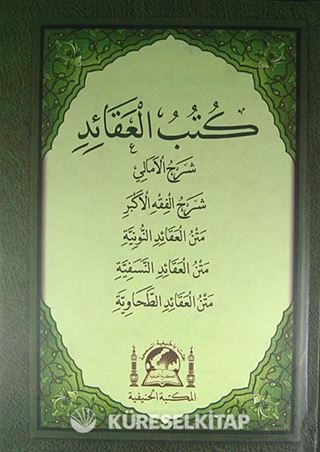 كُتُبُ الْعَقَائِدِ
شَرْحُ الْأَمَالِي
شَرْحُ الْفِقْهِ الْأَكْبَرِ
مَتْنُ الْعَقَائِدِ النُّونِيَّةِ
مَتْنُ الْعَقَائِدِ النَّسَفِيَّةِ
مَتْنُ الْعَقَائِدِ الطَّحَاوِيَّةِ
المكتبة الحنيفية
KÜRESELKİTAP